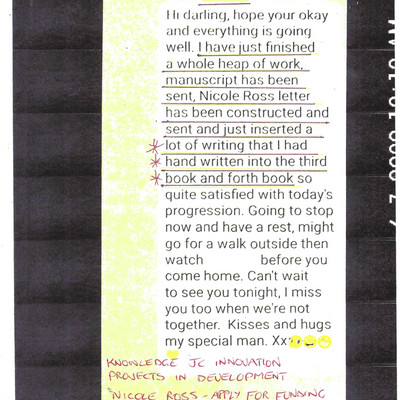 Hi darling, hope your okay
and everything is going
well. I have just finished
a whole heap of work,
manuscript has been
sent, Nicole Ross letter
has been constructed and
sent and just inserted a
lot of writing that I had
hand written into the third
book and forth book so
quite satisfied with today's
progression. Going to stop
now and have a rest, might
go for a walk outside then
watch before you
come home. Can't wait
to see you tonight, I miss
you too when we're not
together. Kisses and hugs
my special man. Xx
KNOWLEDGE JC INNOVATION
PROJECTS IN DEVELOPMENT
"NICOLE ROSS - APPLY FOR FUNDING